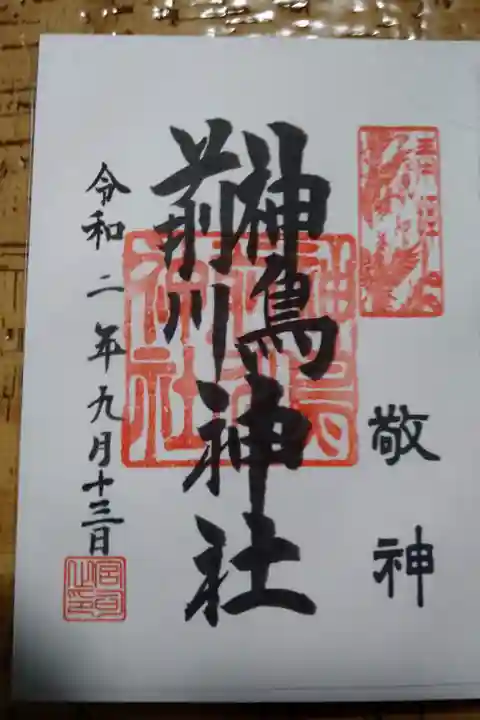 敬神
神鳥
前川
神社
令和二年九月十三日
宮司之印